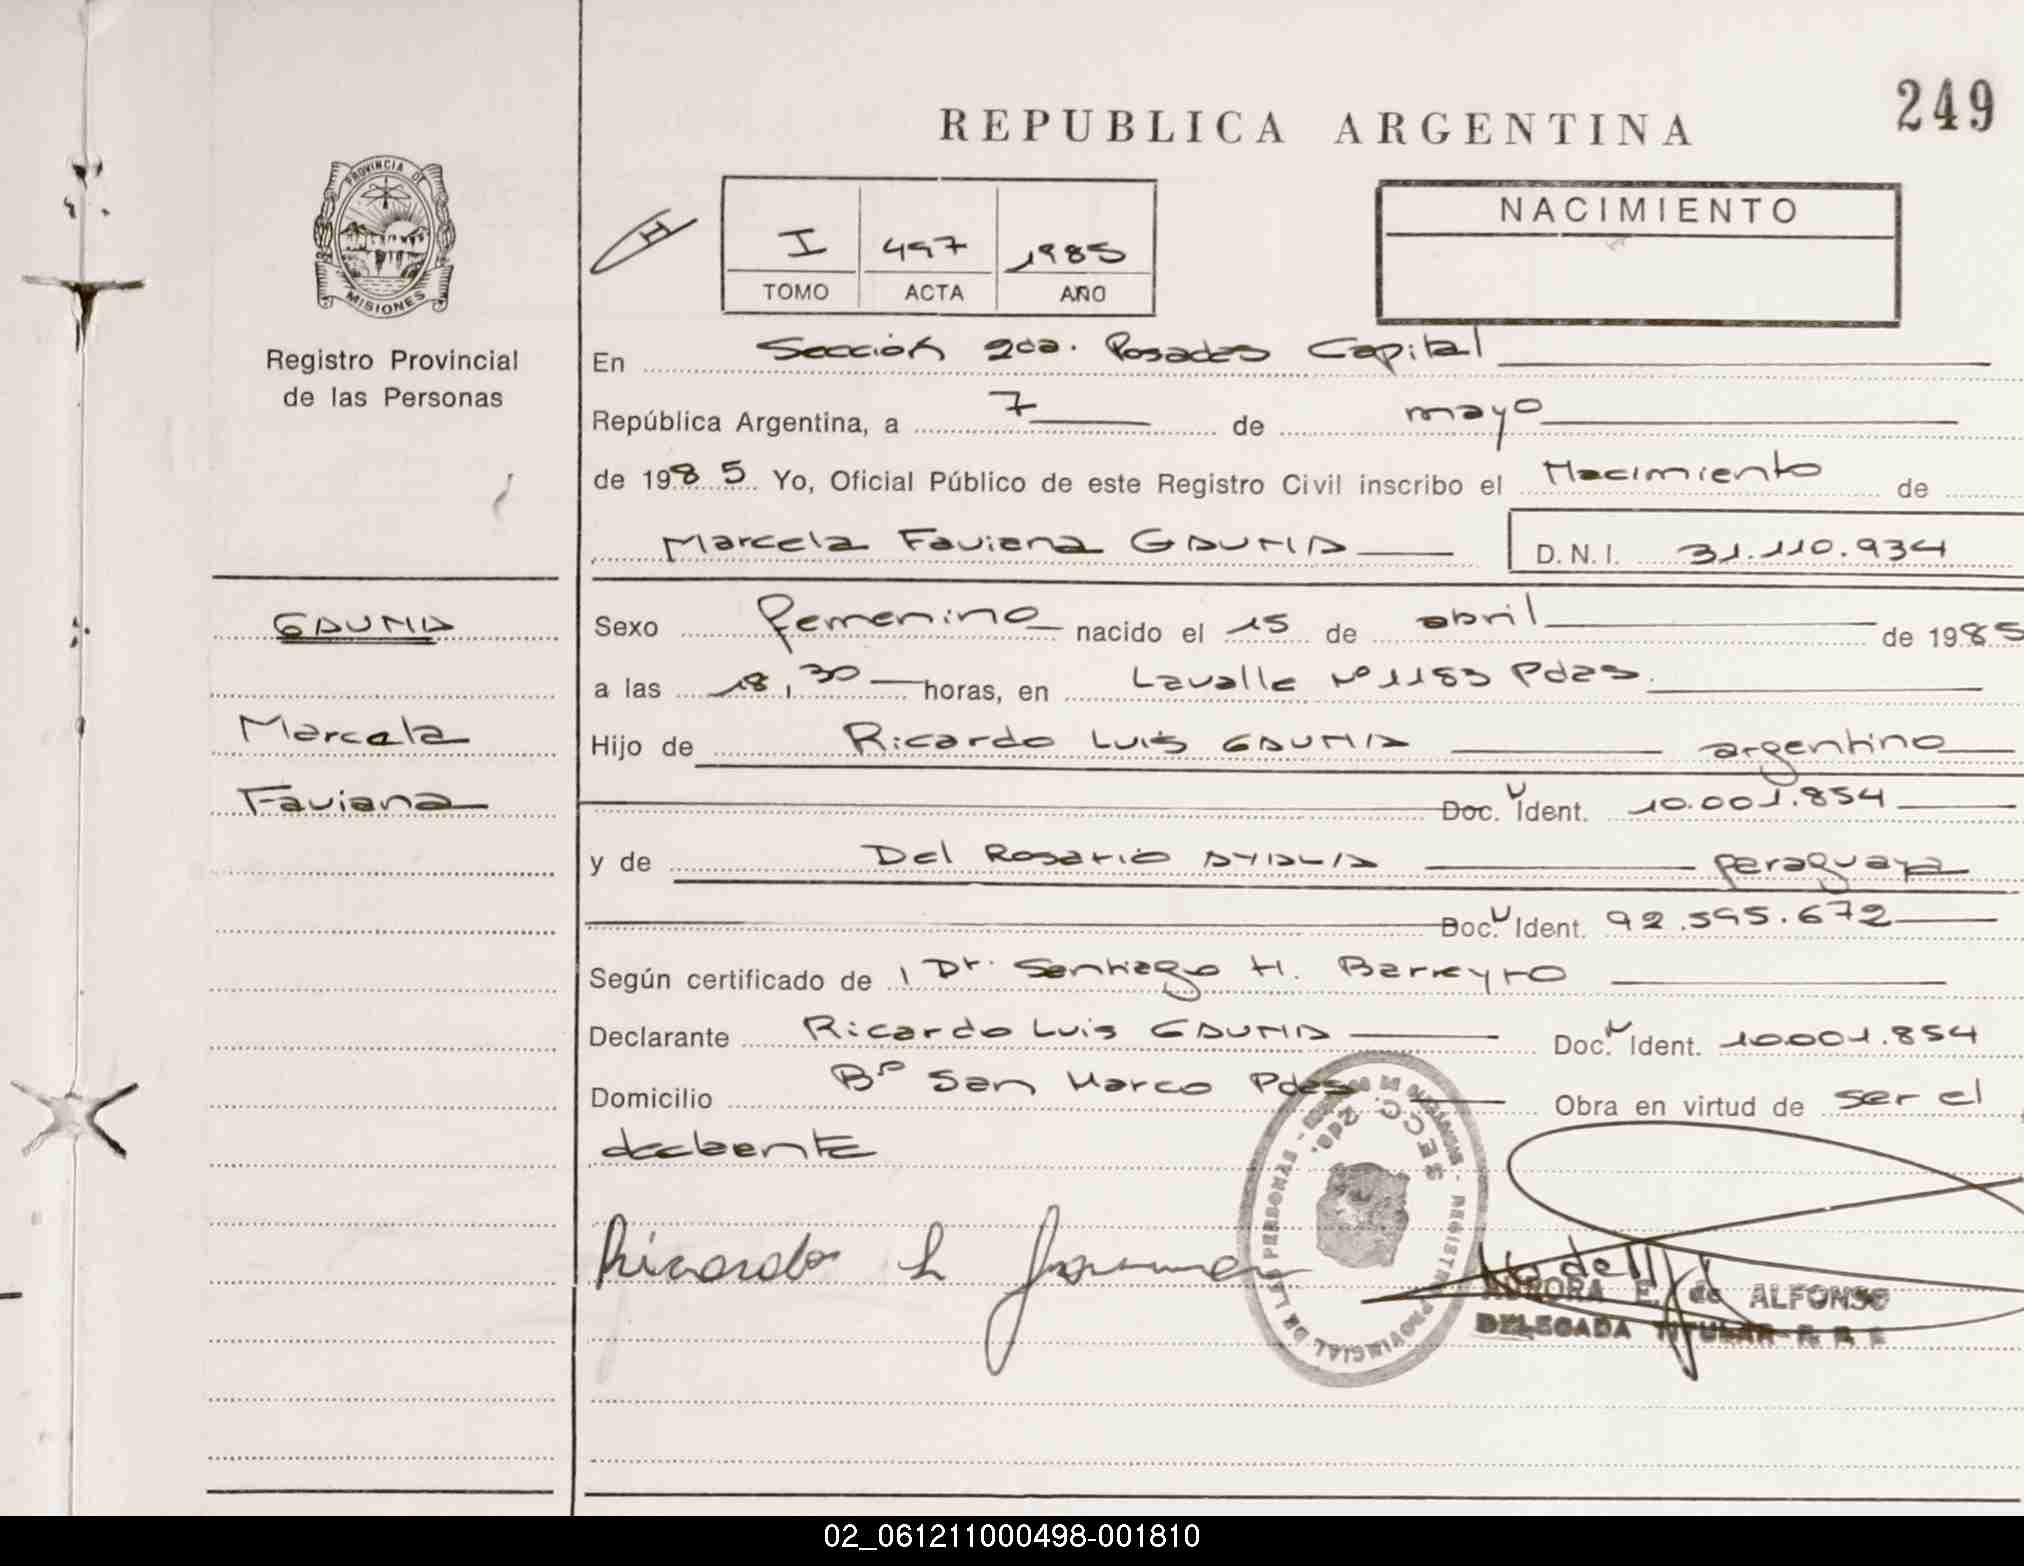 249
REPUBLICA ARGENTINA
PROVINCIA DE
MISIONES
Registro Provincial
de las Personas
H
I 497 1985
TOMO ACTA AÑO
NACIMIENTO
En Sección 2da. Posadas Capital
República Argentina, a 7 de mayo
de 1985 Yo, Oficial Público de este Registro Civil inscribo el Nacimiento de
Marcela Faviana GAUNA D.N.I. 31.110.934
GAUNA
Marcela
Faviana
Sexo femenino nacido el 15 de abril de 1985
a las 18,30 horas, en Lavalle Nº 1183 Pdas.
Hijo de Ricardo Luis GAUNA argentino
Doc. Ident. 10.001.854
y de Del Rosario AYALA paraguaya
Doc. Ident. 92.595.672
Según certificado de Dr. Santiago H. Barreyro
Declarante Ricardo Luis GAUNA Doc. Ident. 10.001.854
Domicilio Bº San Marco Pdas Obra en virtud de ser el
Ricardo L Gauna
SECC. 2da.
REGISTRO PROVINCIAL DE LAS PERSONAS
AURORA E. de ALFONSO
DELEGADA TITULAR - R. P. P.
02_061211000498-001810